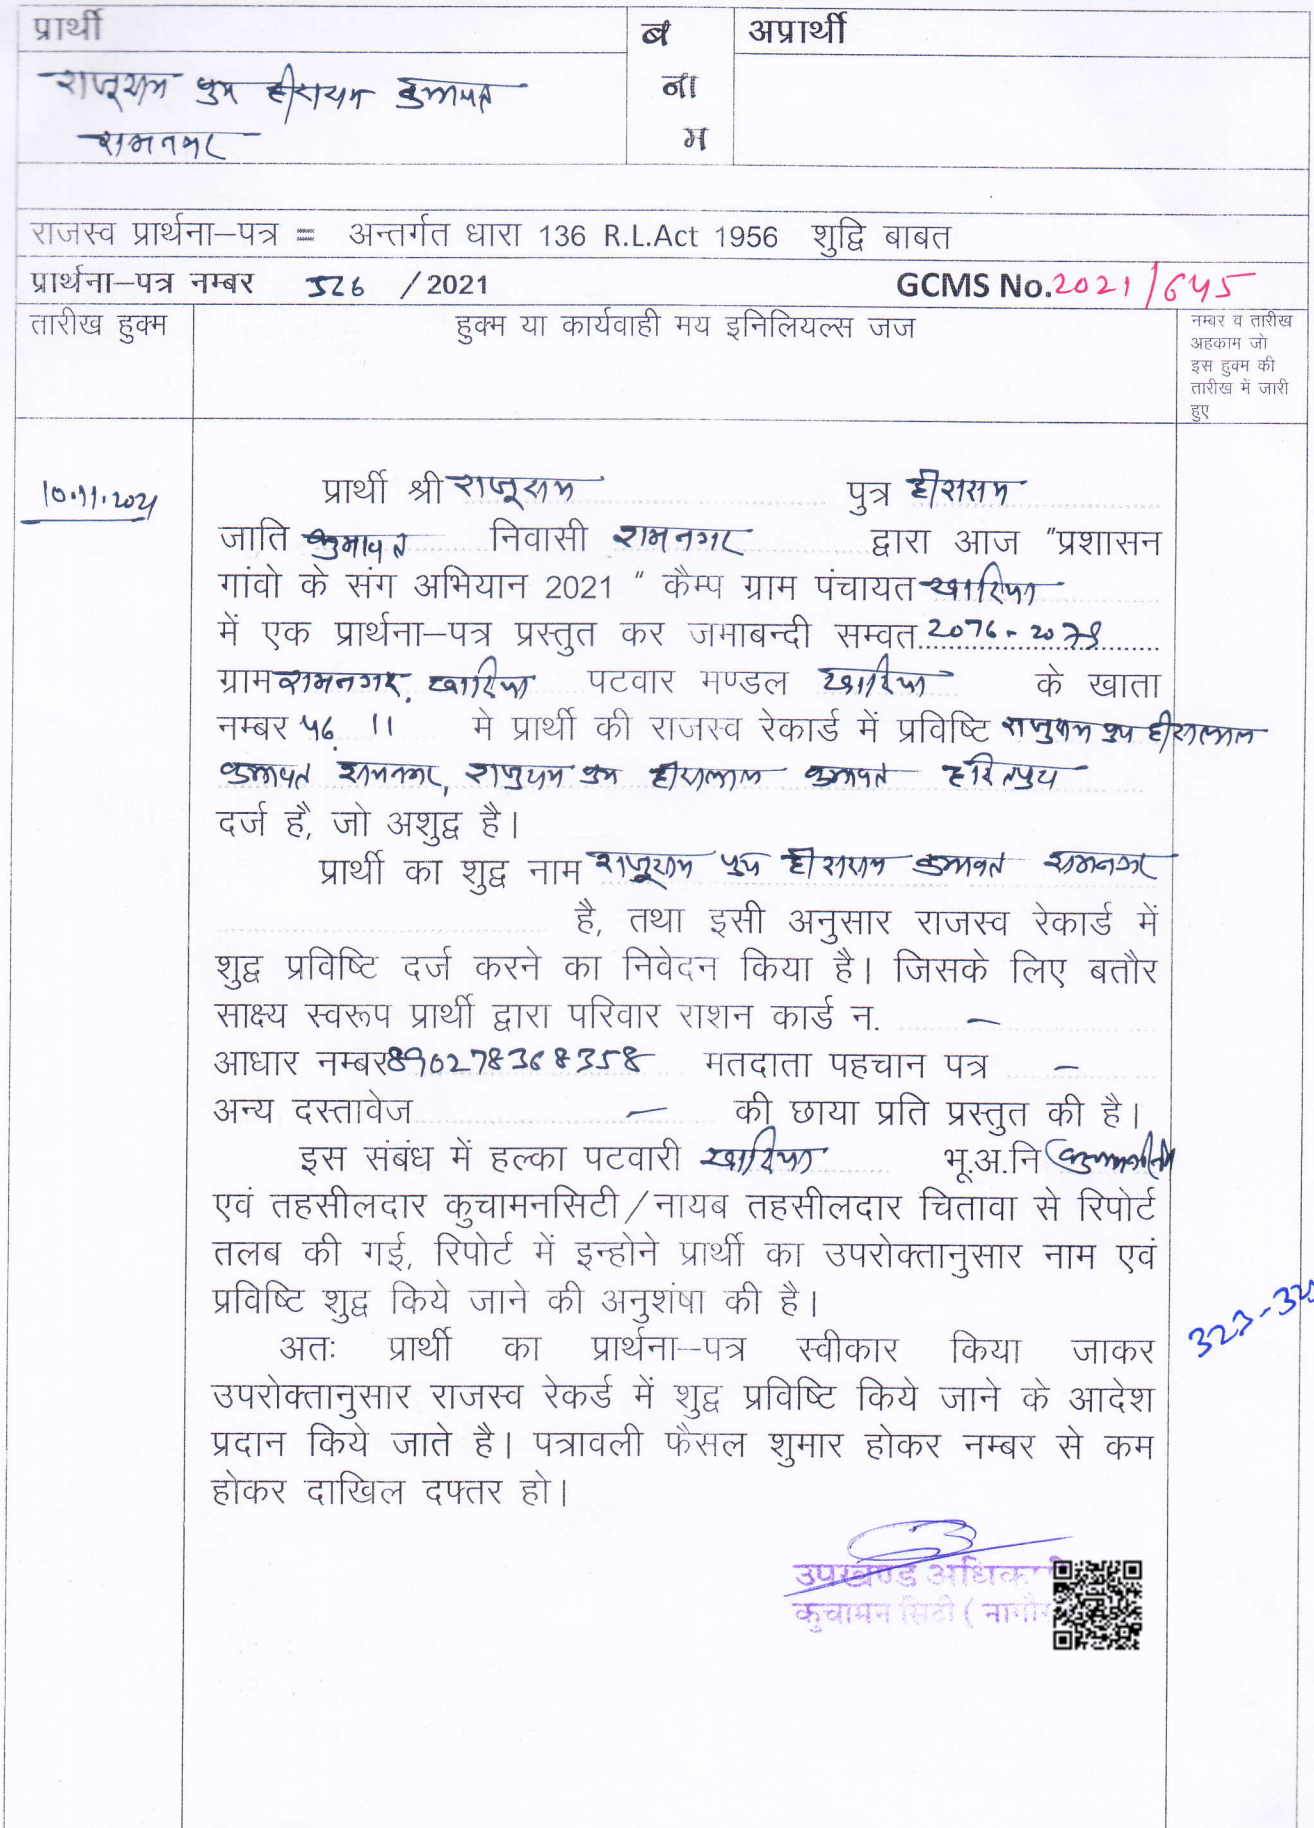 प्रार्थी
ब
ना
म
अप्रार्थी
राजूराम पुत्र हीराराम कुमावत
रामनगर
राजस्व प्रार्थना–पत्र = अन्तर्गत धारा 136 R.L.Act 1956 शुद्वि बाबत
प्रार्थना–पत्र नम्बर 526 / 2021 GCMS No.2021/645
तारीख हुक्म
हुक्म या कार्यवाही मय इनिलियल्स जज
नम्बर व तारीख
अहकाम जो
इस हुक्म की
तारीख में जारी
हुए
10.11.2021
प्रार्थी श्री राजूराम पुत्र हीराराम
जाति कुमावत निवासी रामनगर द्वारा आज "प्रशासन
गांवो के संग अभियान 2021 " कैम्प ग्राम पंचायत खारिया
में एक प्रार्थना–पत्र प्रस्तुत कर जमाबन्दी सम्वत 2076-2079
ग्राम रामनगर, खारिया पटवार मण्डल खारिया के खाता
नम्बर 56, 11 मे प्रार्थी की राजस्व रेकार्ड में प्रविष्टि राजुराम पुत्र हीरालाल
कुमावत रामनगर, राजुराम पुत्र हीरालाल कुमावत हरितपुरा
दर्ज है, जो अशुद्व है।
प्रार्थी का शुद्व नाम राजूराम पुत्र हीराराम कुमावत रामनगर
है, तथा इसी अनुसार राजस्व रेकार्ड में
शुद्व प्रविष्टि दर्ज करने का निवेदन किया है। जिसके लिए बतौर
साक्ष्य स्वरूप प्रार्थी द्वारा परिवार राशन कार्ड न. –
आधार नम्बर 890278368358 मतदाता पहचान पत्र –
अन्य दस्तावेज – की छाया प्रति प्रस्तुत की है।
इस संबंध में हल्का पटवारी खारिया भू.अ.नि
एवं तहसीलदार कुचामनसिटी/नायब तहसीलदार चितावा से रिपोर्ट
तलब की गई, रिपोर्ट में इन्होने प्रार्थी का उपरोक्तानुसार नाम एवं
प्रविष्टि शुद्व किये जाने की अनुशंषा की है।
323-325
अतः प्रार्थी का प्रार्थना--पत्र स्वीकार किया जाकर
उपरोक्तानुसार राजस्व रेकर्ड में शुद्व प्रविष्टि किये जाने के आदेश
प्रदान किये जाते है। पत्रावली फैसल शुमार होकर नम्बर से कम
होकर दाखिल दफ्तर हो।
उपखण्ड अधिका
कुचामन सिटी ( नागौर